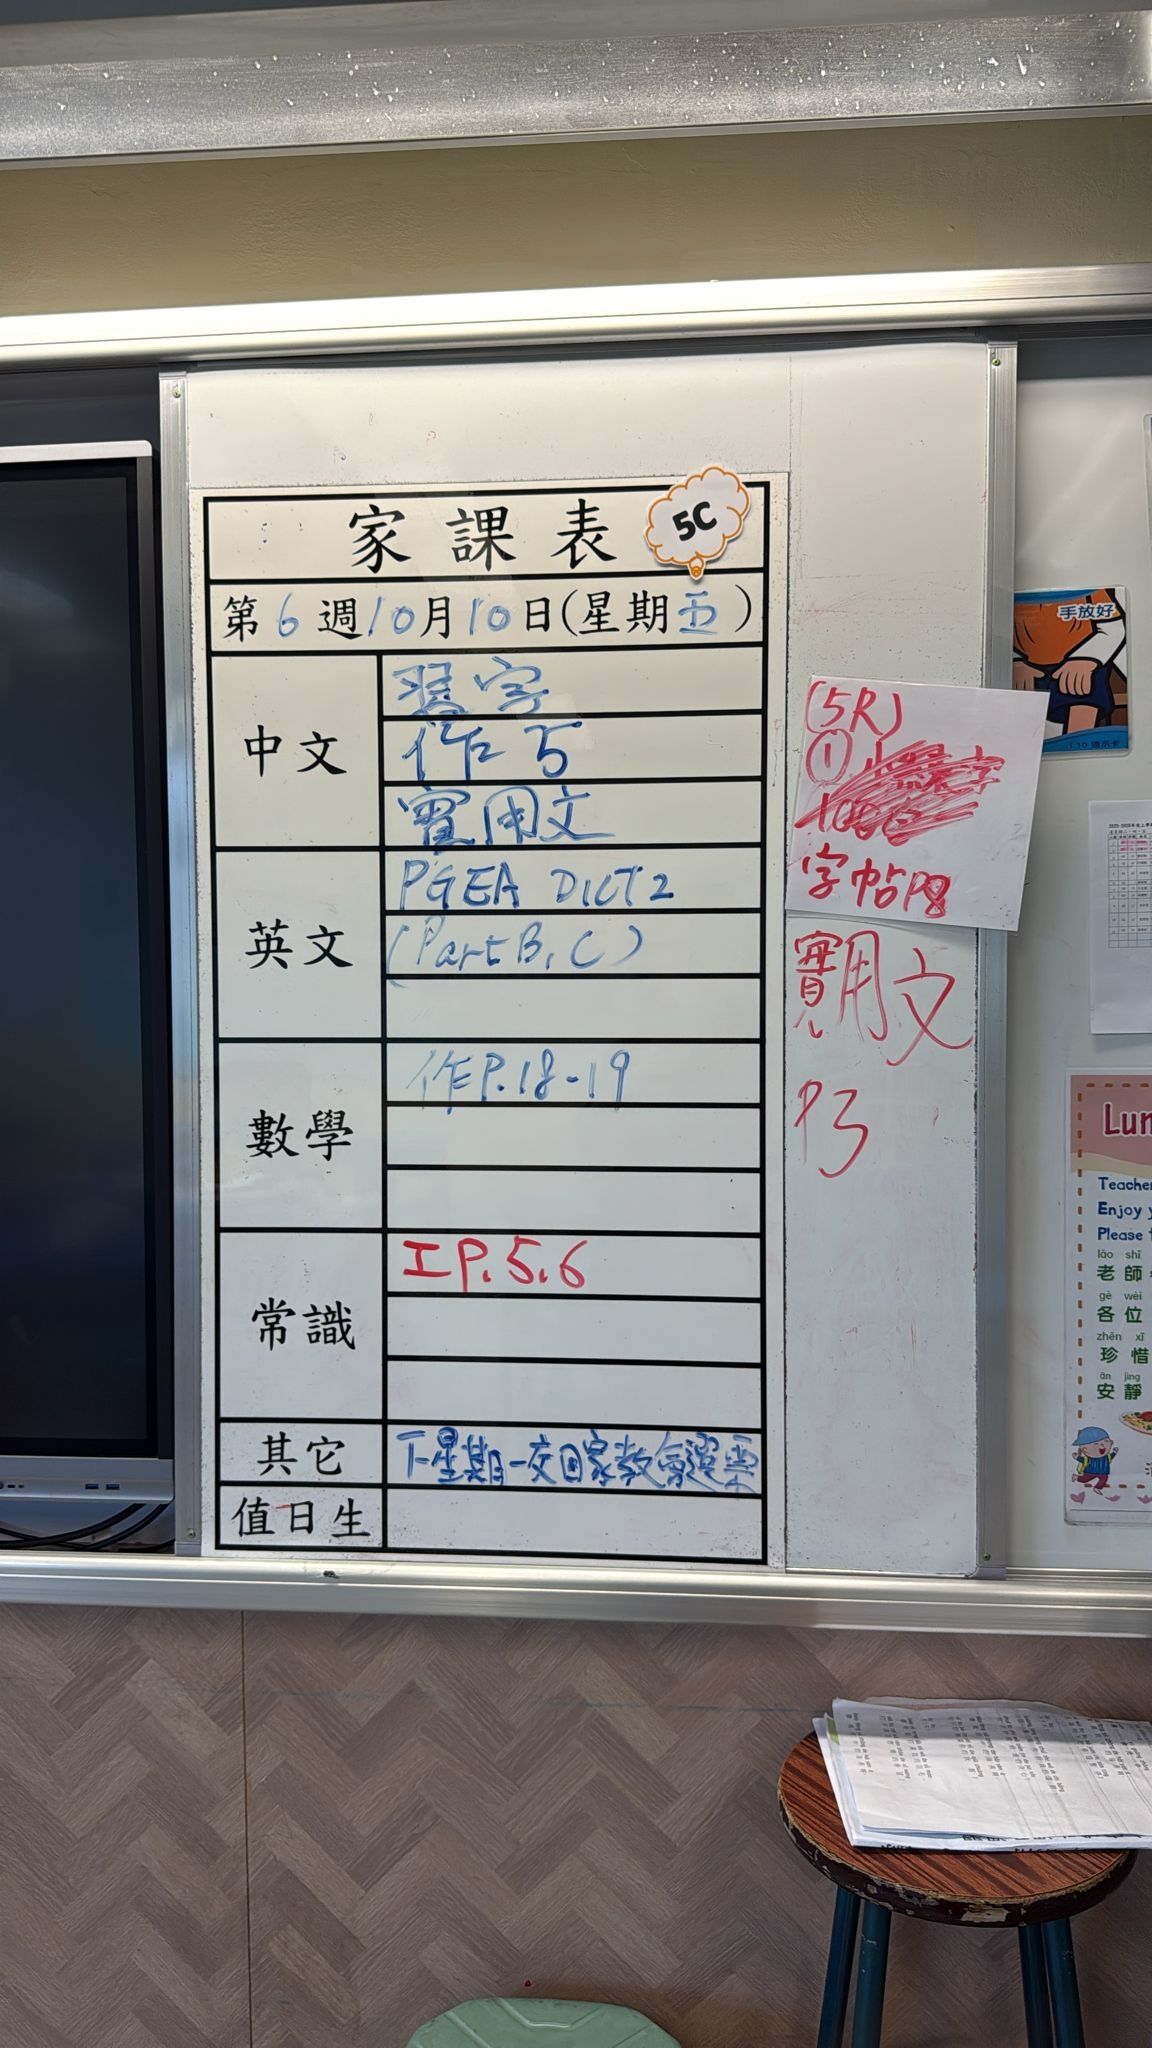 家課表
5C
第6週10月10日(星期五)
中文
習字
作5
實用文
英文
PGEA DICT2
(Part B, C)
數學
作P.18-19
常識
工P.5.6
其它
下星期一交回家教會選票
值日生
(5R)
①
字帖P8
實用文
P3
手放好
1.10 提示卡
Lun
Teacher
Enjoy y
Please
lǎo shī
老師
gè wèi
各位
zhēn xī
珍惜
ān jìng
安靜